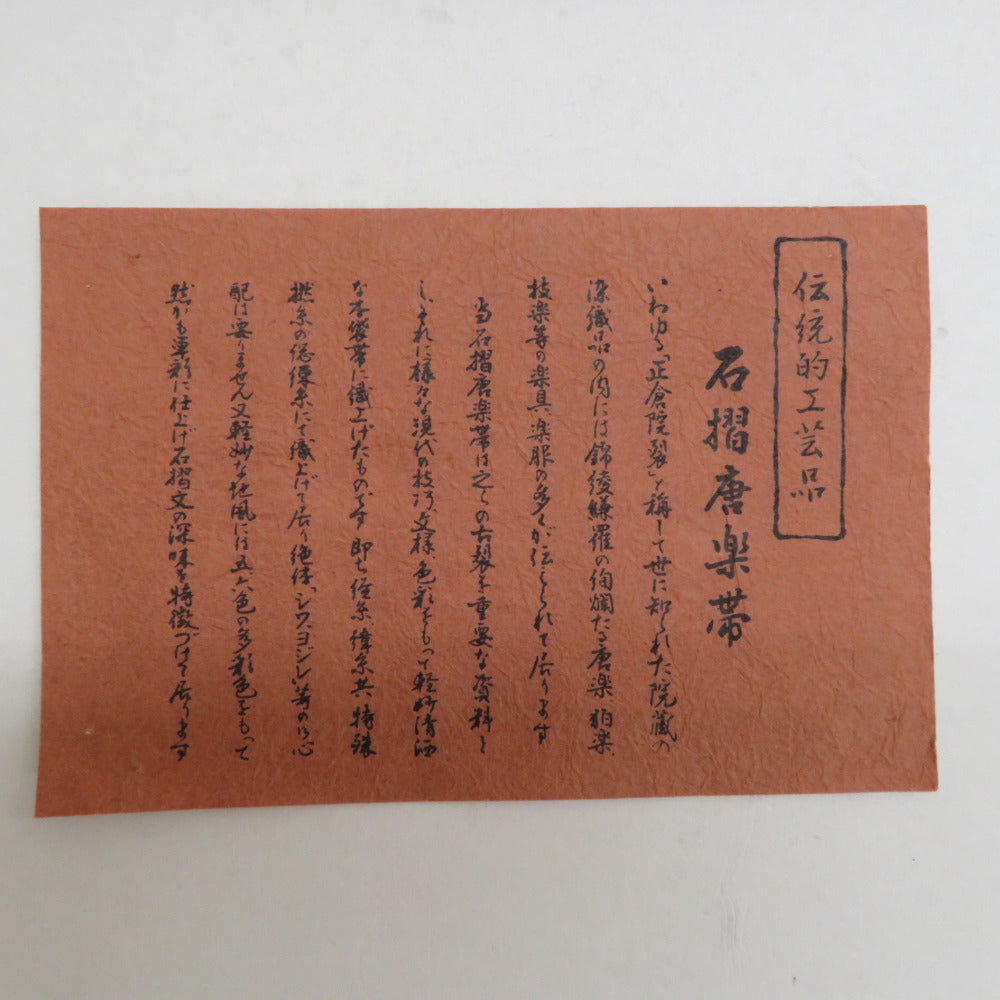 伝統的工芸品
石摺唐楽帯
いわゆる「正倉院裂」と称して世に知られた院蔵の
染織品の内には錦綾纐羅の絢爛たる唐楽、狛楽、
技楽等の楽具、楽服の多くが伝えられて居ります
当石摺唐楽帯は之らの古裂を重要な資料と
し、それに様々な現代の技巧、文様、色彩をもって軽妙清洒
な本袋帯に織上げたものです 即ち経糸緯糸共、特殊
撚糸の総練糸にて織上げて居り絶体、シワ、ヨジレ、等の御心
配は要りません又軽妙な地風には五、六色の多彩色をもって
然かも単彩に仕上げ石摺文の深味を特徴づけて居ります